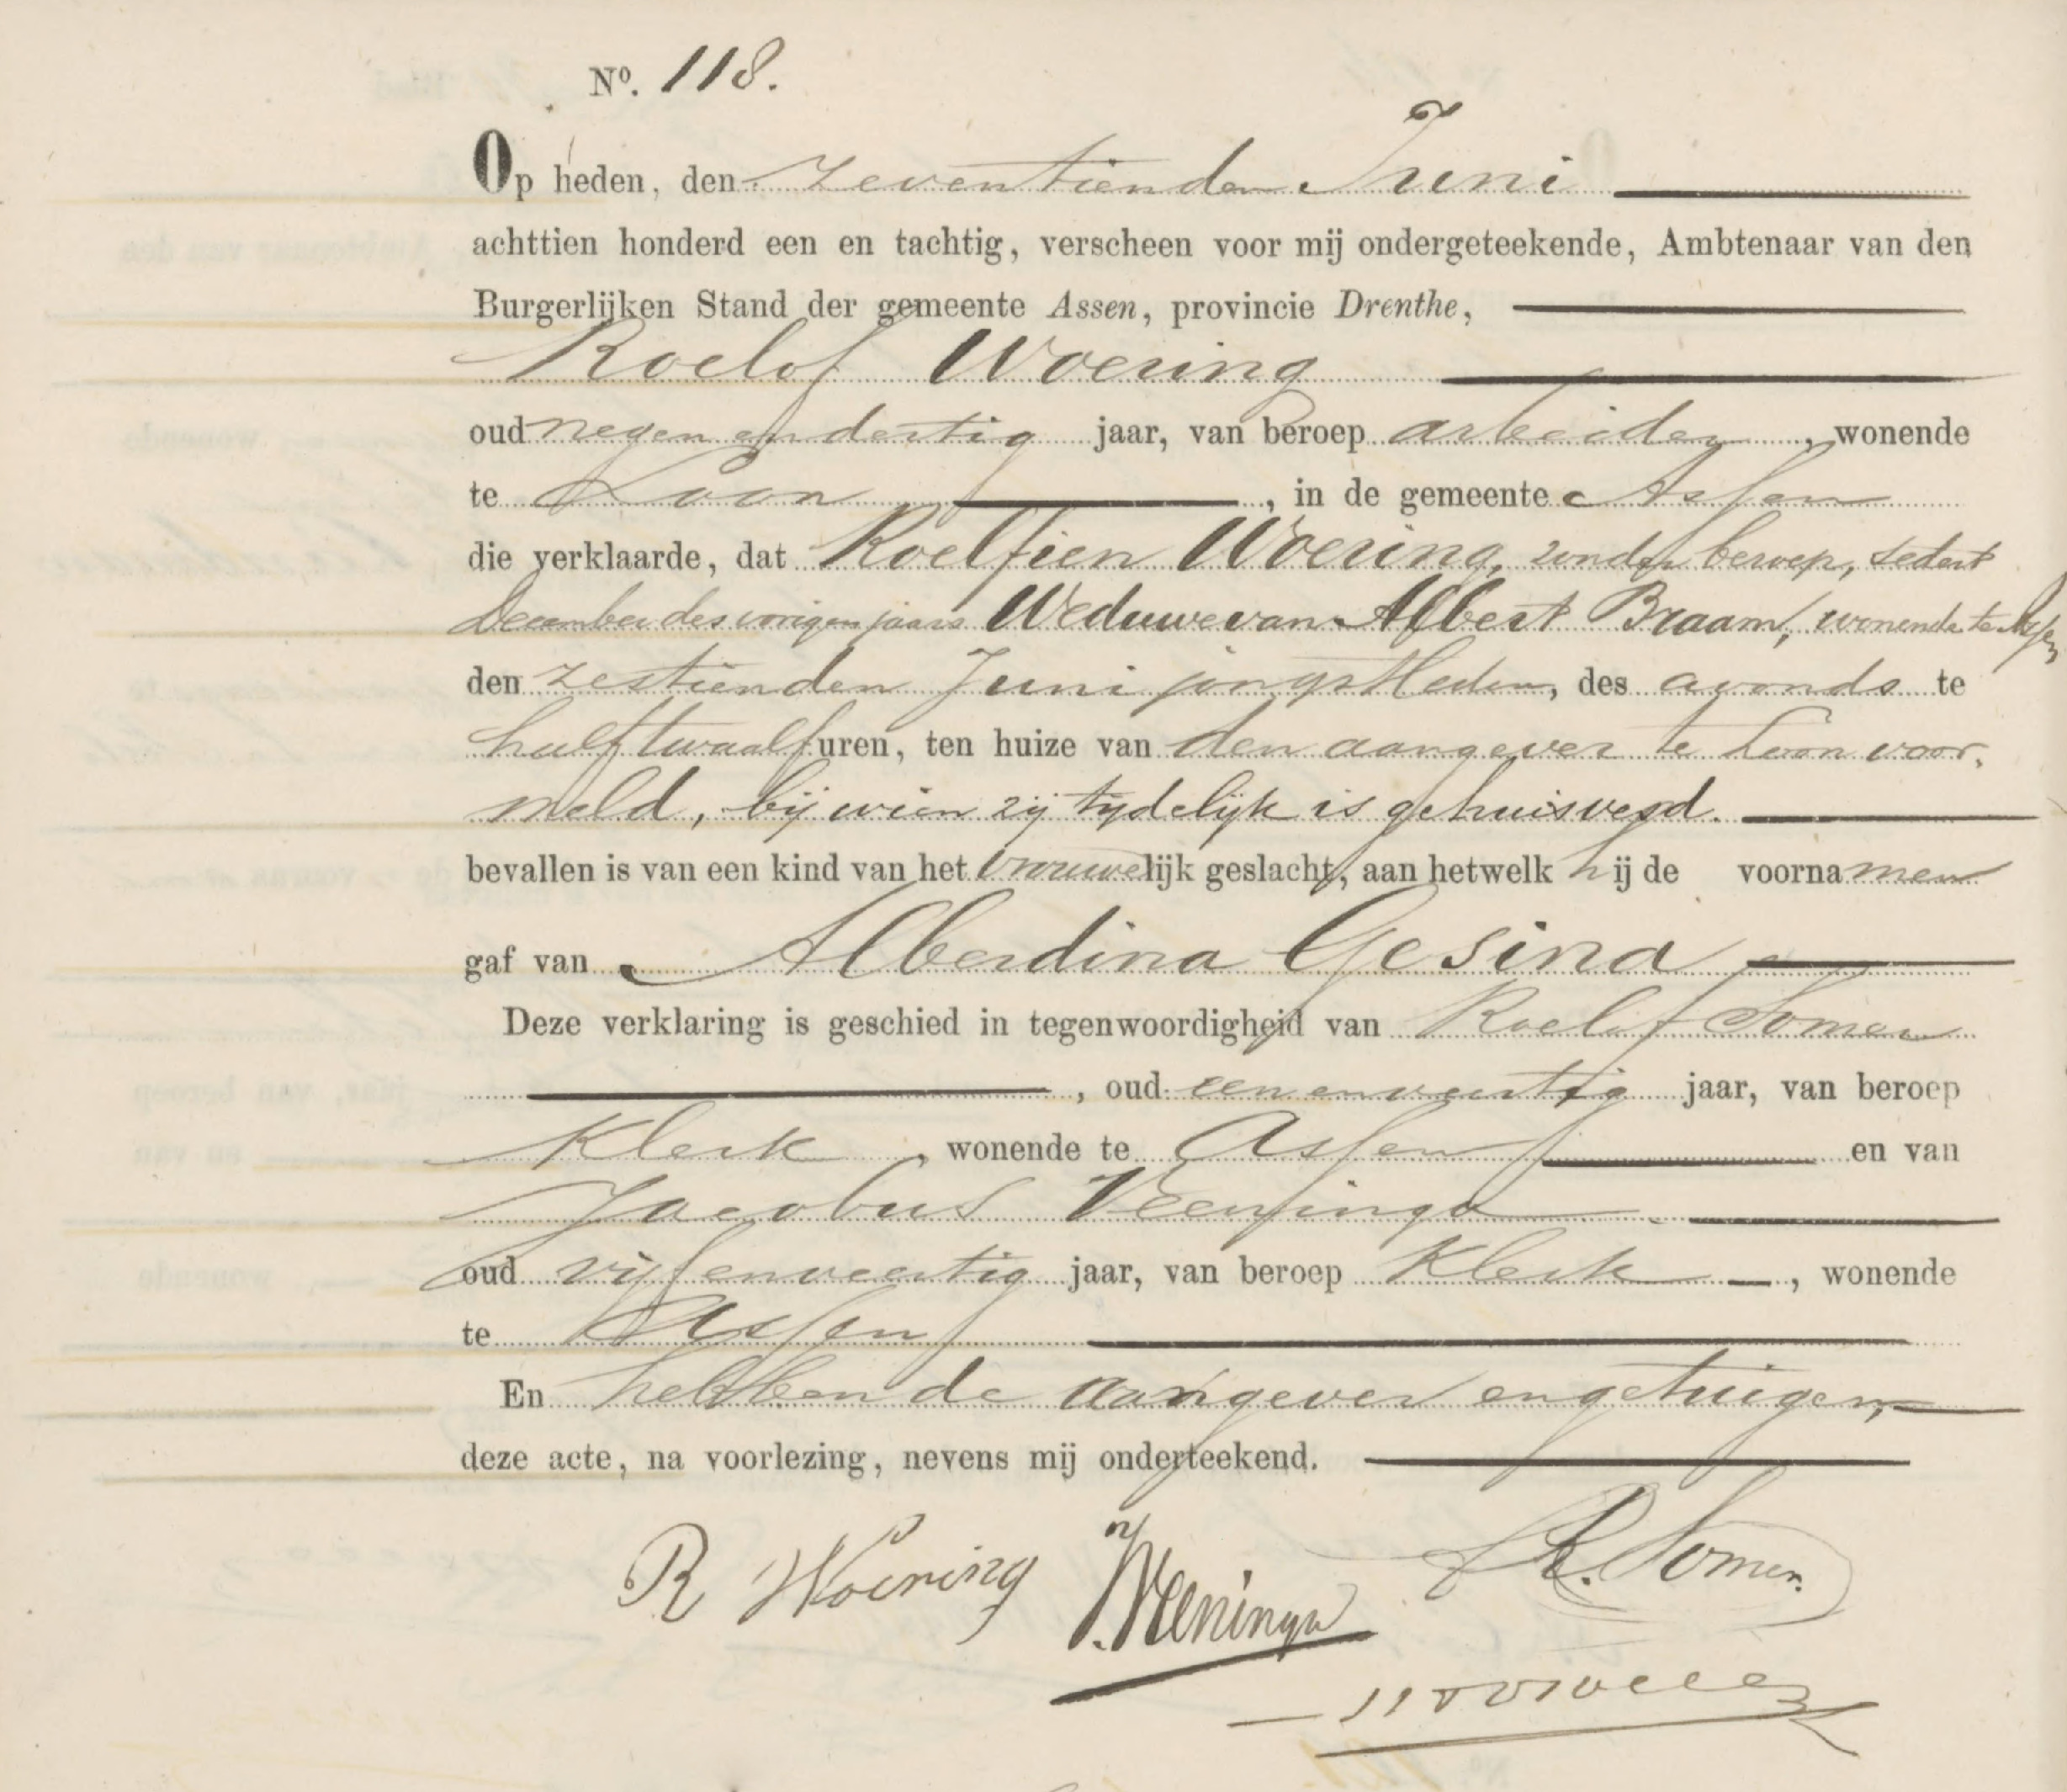 Nº. 118.
Op heden, den zeventienden Juni
achttien honderd een en tachtig, verscheen voor mij ondergeteekende, Ambtenaar van den
Burgerlijken Stand der gemeente Assen, provincie Drenthe,
Roelof Woering
oud negen en dertig jaar, van beroep arbeider, wonende
te Loon, in de gemeente Assen
die verklaarde, dat Roelfien Woering, zonder beroep, sedert
December des vorigen jaars Weduwe van Albert Braam, wonende te Assen
den zestienden Juni jongstleden, des avonds te
half twaalf uren, ten huize van den aangever te Loon voor-
meld, bij wien zij tijdelijk is gehuisvest.
bevallen is van een kind van het vrouwelijk geslacht, aan hetwelk hij de voornamen
gaf van Alberdina Gesina
Deze verklaring is geschied in tegenwoordigheid van Roelof Somer
, oud een en veertig jaar, van beroep
Klerk, wonende te Assen en van
Jacobus Veeninga
oud vijf en veertig jaar, van beroep Klerk, wonende
te Assen
En hebben de aangever en getuigen,
deze acte, na voorlezing, nevens mij onderteekend.
R Woering J. Veeninga R. Somer.